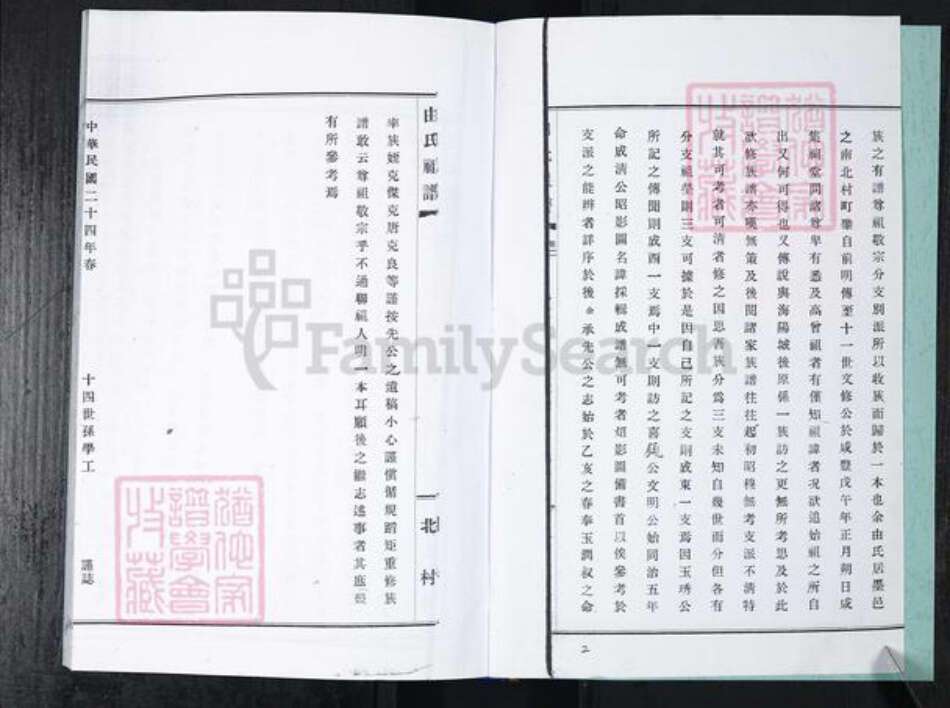 族之有譜尊祖敬宗分支別派所以收族而歸於一本也余由氏居墨邑
之南北村町鑒自前明傳至十一世文修公於咸豐戊午年正月朔日咸
集祠堂問諸尊卑有悉及高曾祖者有僅知祖諱者况欲追始祖之所自
出又何可得也又傳說與海陽城後原係一族訪之更無所考思及於此
欲修族譜亦嘆無策及後閱諸家族譜往往起初昭穆無考支派不清特
就其可考者可清者修之因思吾族分爲三支未知自幾世而分但各有
分支祖塋則三支可據於是因自己所記之支則成東一支焉因玉琇公
所記之傳聞則成西一支焉中一支則訪之喜 公文明公始同治五年
命成清公昭影圖名諱採輯成譜無可考者煩影圖備書首以俟參考於
支派之能辨者詳序於後余承先公之志始於乙亥之春奉玉潤叔之命
2
由氏祖譜
北村
率族姪克傑克唐克良等謹按先公之遺稿小心謹慎循規蹈矩重修族
譜敢云尊祖敬宗乎不過聯祖人明一本耳願後之繼志述事者其庶
有所參考焉
中華民國二十四年春 十四世孫學工 謹誌
FamilySearch